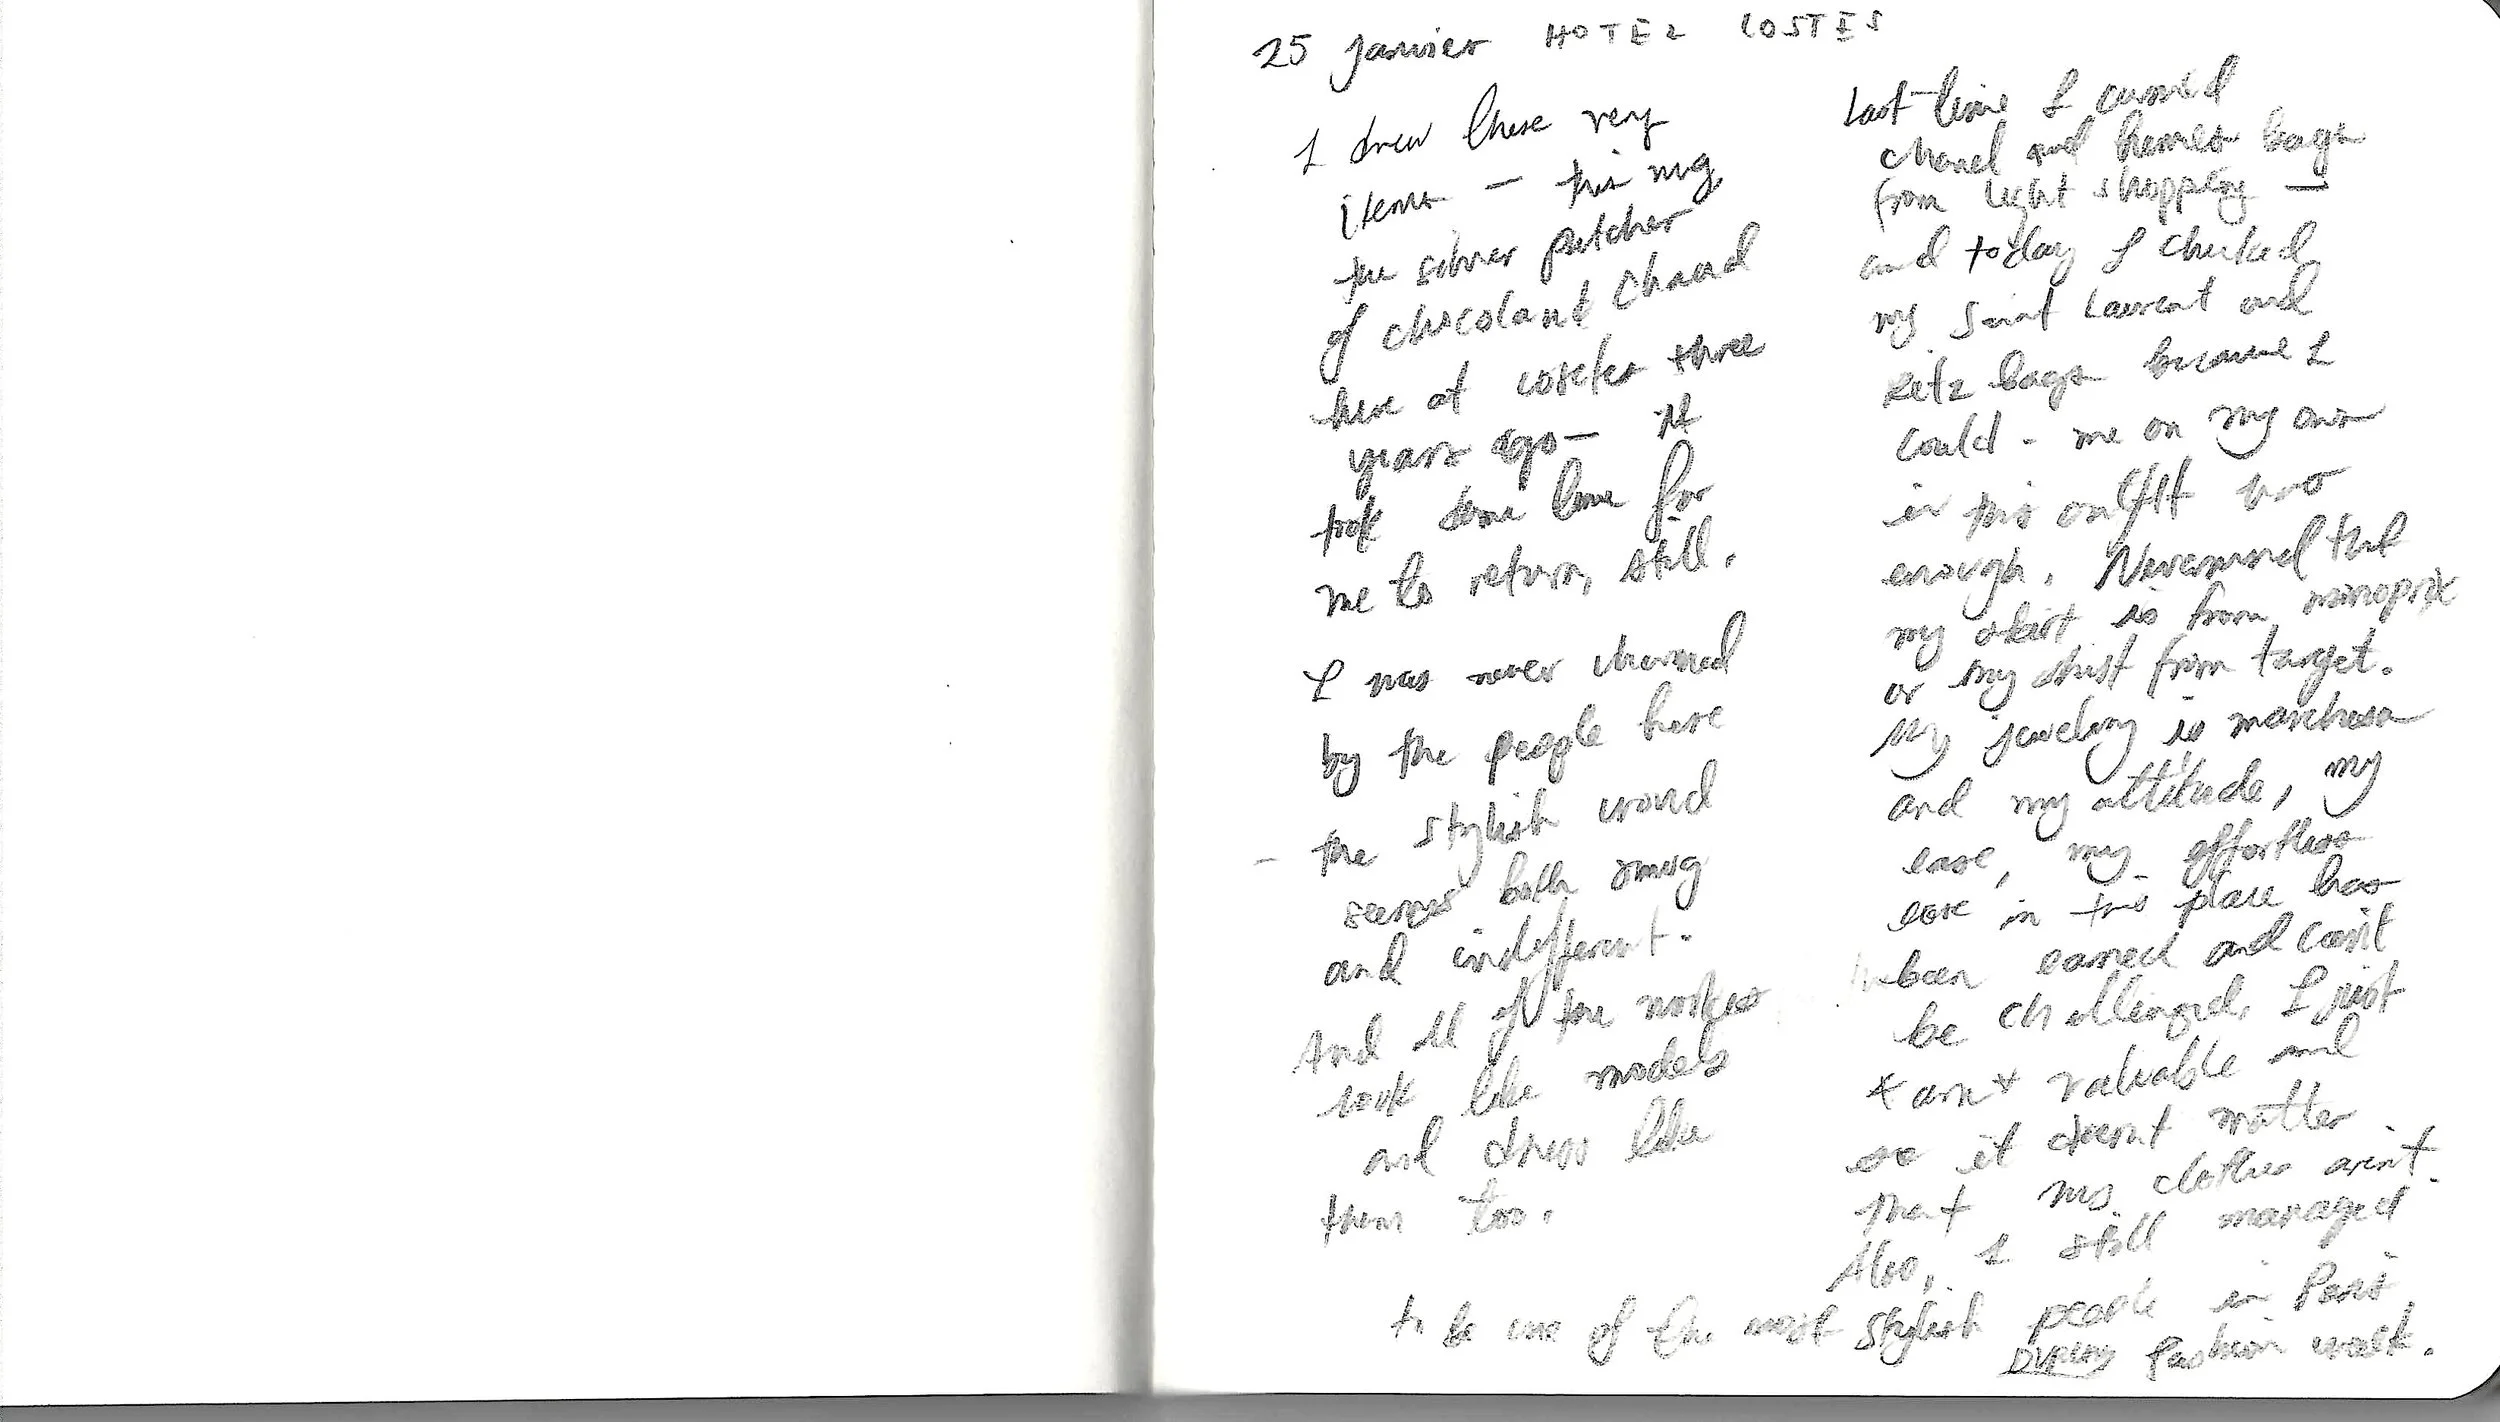 25 Janvier HOTEL COSTES
I drew these very
items — this mug,
the silver pitcher
of chocolant chaud
here at costes three
years ago — it
took some time for
me to return, still.
I was never charmed
by the people here
- the stylish crowd
seems both smug
and indifferent.
And all of the
look like models
and dress like
them too.
Last time I carried
chanel and hermes bags
from light shopping —
and today I checked
my Saint Laurent and
Ritz bags because I
could - me on my own
in this outfit was
enough. Nevermind that
my skirt is from monoprix
or my shirt from target.
My jewelry is marchesa
and my attitude, my
ease, my effortless
ease in this place has
been earned and can't
be challenged. I just
*am* valuable and
so it doesn't matter
that my clothes aren't.
Also, I still managed
to be one of the most stylish people in Paris
DURING fashion week.